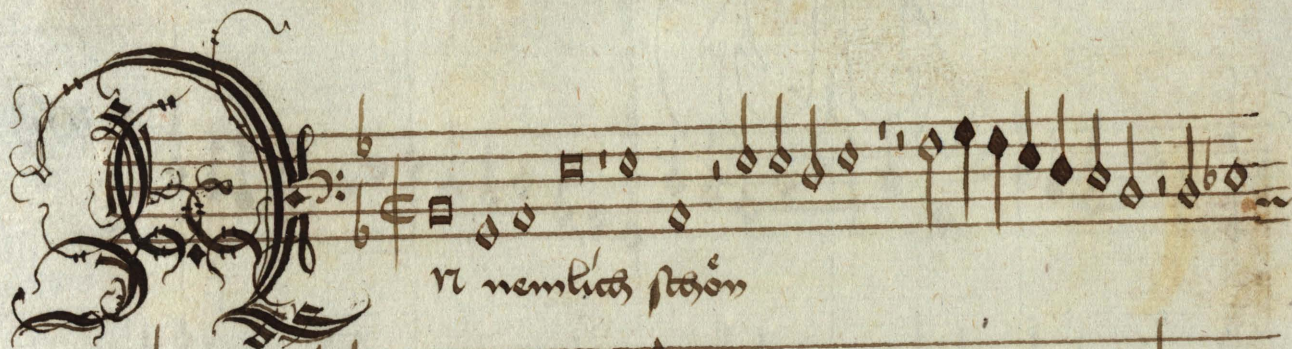 n nemlich schön